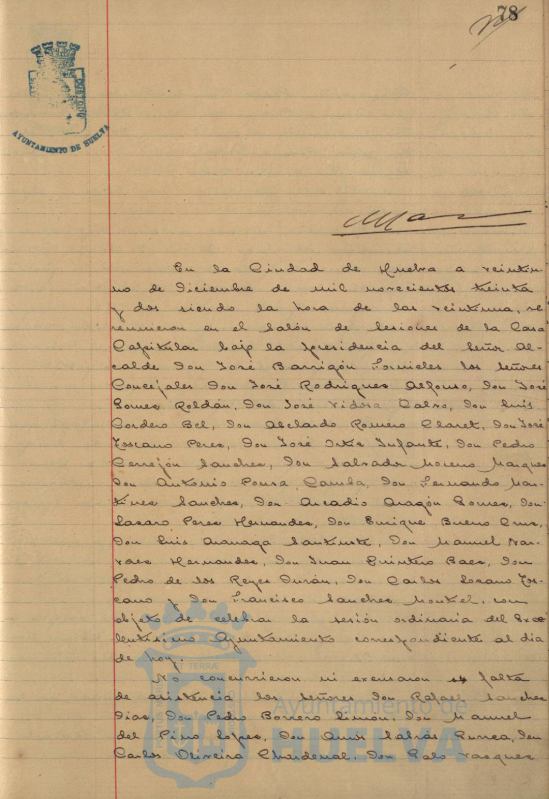 78
AYUNTAMIENTO DE HUELVA
En la Ciudad de Huelva a veintiu-
no de Diciembre de mil novecientos treinta
y dos siendo la hora de las veintiuna, se
reunieron en el salón de Sesiones de la Casa
Capitular bajo la presidencia del Señor Al-
calde Don José Barrigón Fornieles los señores
Concejales Don José Rodríguez Alfonso, Don José
Gomez Roldán, Don José Vidosa Calvo, Don Luis
Cordero Bel, Don Abelardo Romero Claret, Don José
Toscano Perez, Don José Ortiz Infante, Don Pedro
Cerrejón Sanchez, Don Salvador Moreno Marquez
Don Antonio Pousa Camba, Don Fernando Mar-
tinez Sanchez, Don Arcadio Aragón Gomez, Don
Lazaro Perez Hernandez, Don Enrique Bueno Cruz,
Don Luis, Don Manuel Nar-
vaez Hernandez, Don Juan Quintero Baez, Don
Pedro de los Reyes Durán, Don Carlos Lozano Tos-
cano y Don Francisco Sanchez Montiel, con
objeto de celebrar la sesión ordinaria del Exce
lentísimo Ayuntamiento correspondiente al dia
de hoy.
No concurrieron ni excusaron su falta
de asistencia los señores Don Rafael Sanchez
Diaz, Don Pedro Borrero Limón, Don Manuel
del Pino Lopez, Don Salvas, Don
Carlos Oliveira Chardenal, Don Vazquez
Ayuntamiento de
HUELVA